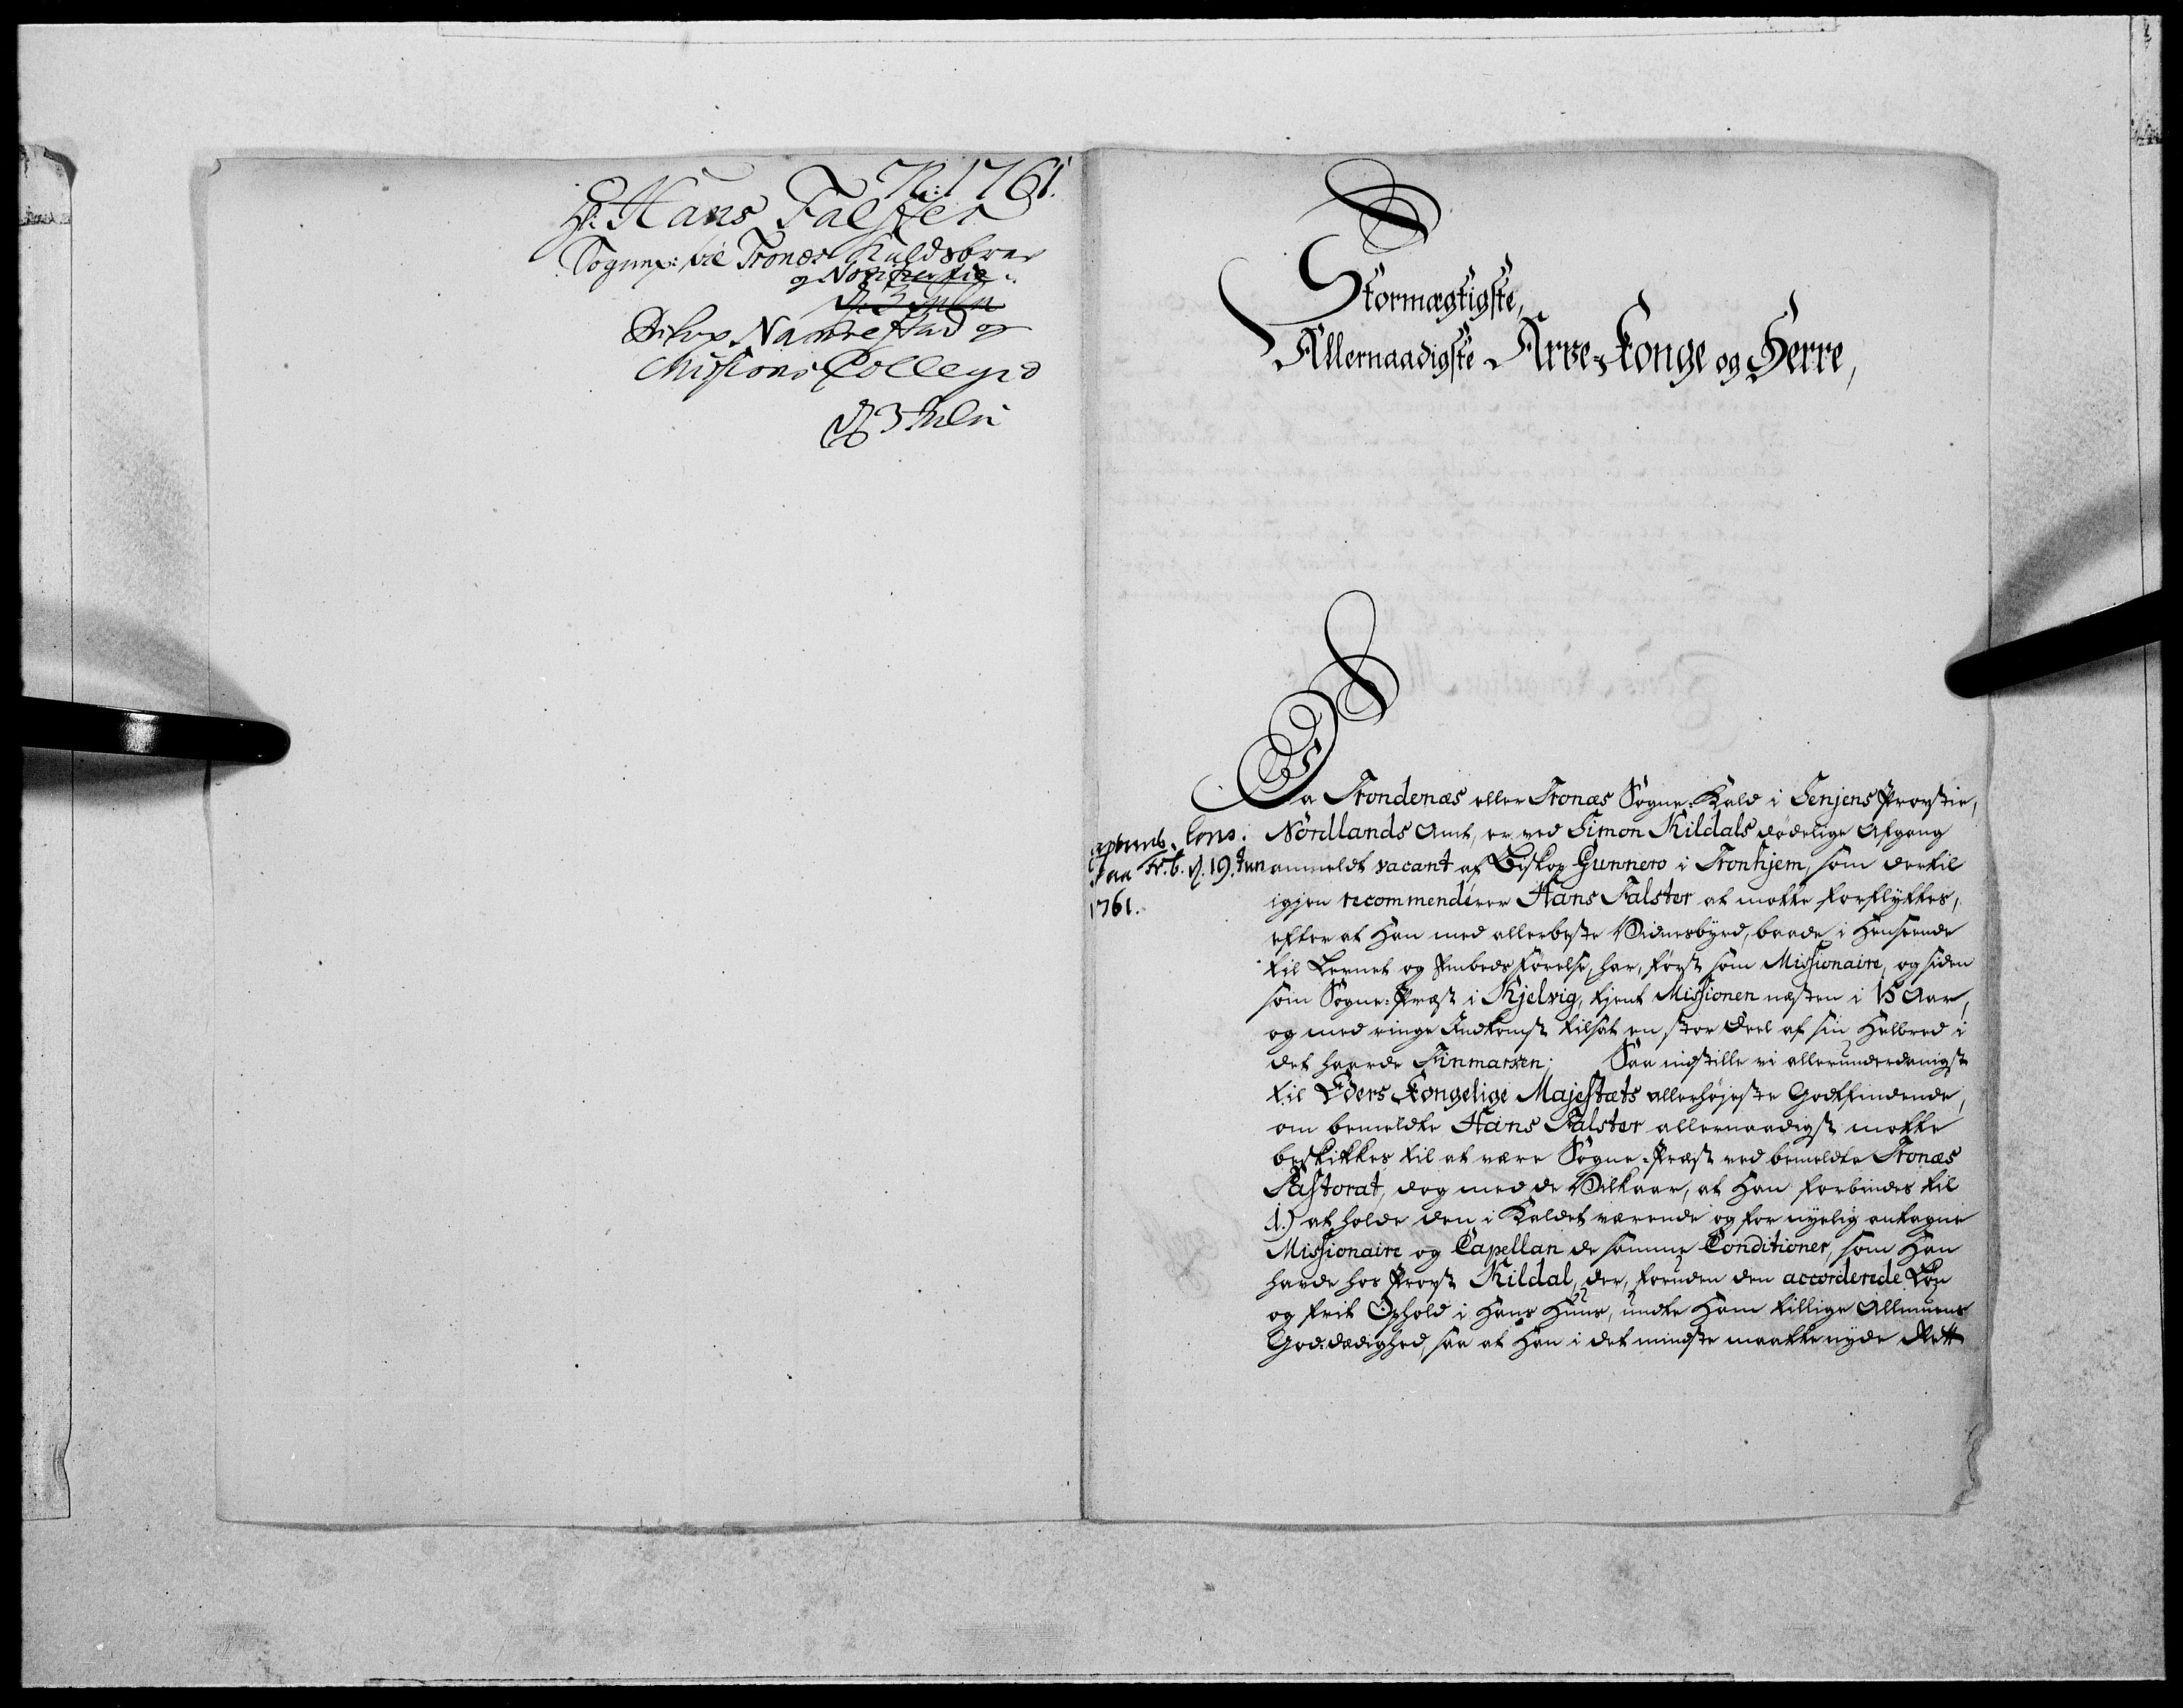 N: 1761.
Hr: Hans Falster
Sognepr: til Tronæs Kaldsbrev
og Notificertis
d. 3 Julii
Biskop Nannestad og
Missions Collegio
d 3 Julii
Stormægtigste,
Allernaadigste Arve-Konge og Herre,
Da Trondenæs eller Tronæs Sogne-Kald i Senjens Provstie,
Nordlands Amt, er ved Simon Kildals dødelige Afgang
anmeldt vacant af Biskop Gunnero i Tronhjem, som dertil
igjen recommenderer Hans Falster at motte forflyttes,
efter at Han med allerbeste Vidnesbyrd, baade i Henseende
til Lernet og Embeds Førelse, har, først som Missionaire, og siden
som Sogne-Præst i Kjelvig, tjent Missionen næsten i 15 Aar,
og med ringe Indkomst tilsat en stor Deel af sin Helbred i
det haarde Finmarken; Saa indstille vi allerunderdanigst
til Eders Kongelige Majestæts allerhøjeste Godtfindende,
om bemeldte Hans Falster allernaadigst motte
beskikkes til at være Sogne-Præst ved bemeldte Tronæs
Pastorat, dog med de Vilkaar, at Han forbindes til
1.) at holde den i Kaldet værende og for nyelig antagne
Missionaire og Capellan de samme Conditioner, som Han
havde hos Provst Kildal, der, foruden den accorderede Løn
og frit Ophold i Hans Huus, undte Ham tillige Allmuens
God-dædighed, saa at Han i det mindste maatte nyde Rett
approb. Cons.
paa Fr.b. d. 19. Jun
1761.